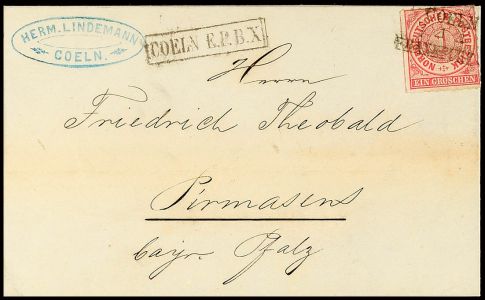 HERM. LINDEMANN
COELN.
COELN E.P.B.X.
NORDDEUTSCHER POSTBEZIRK
EIN GROSCHEN
Herrn
Friedrich Theobald
Pirmasens
bayr. Pfalz